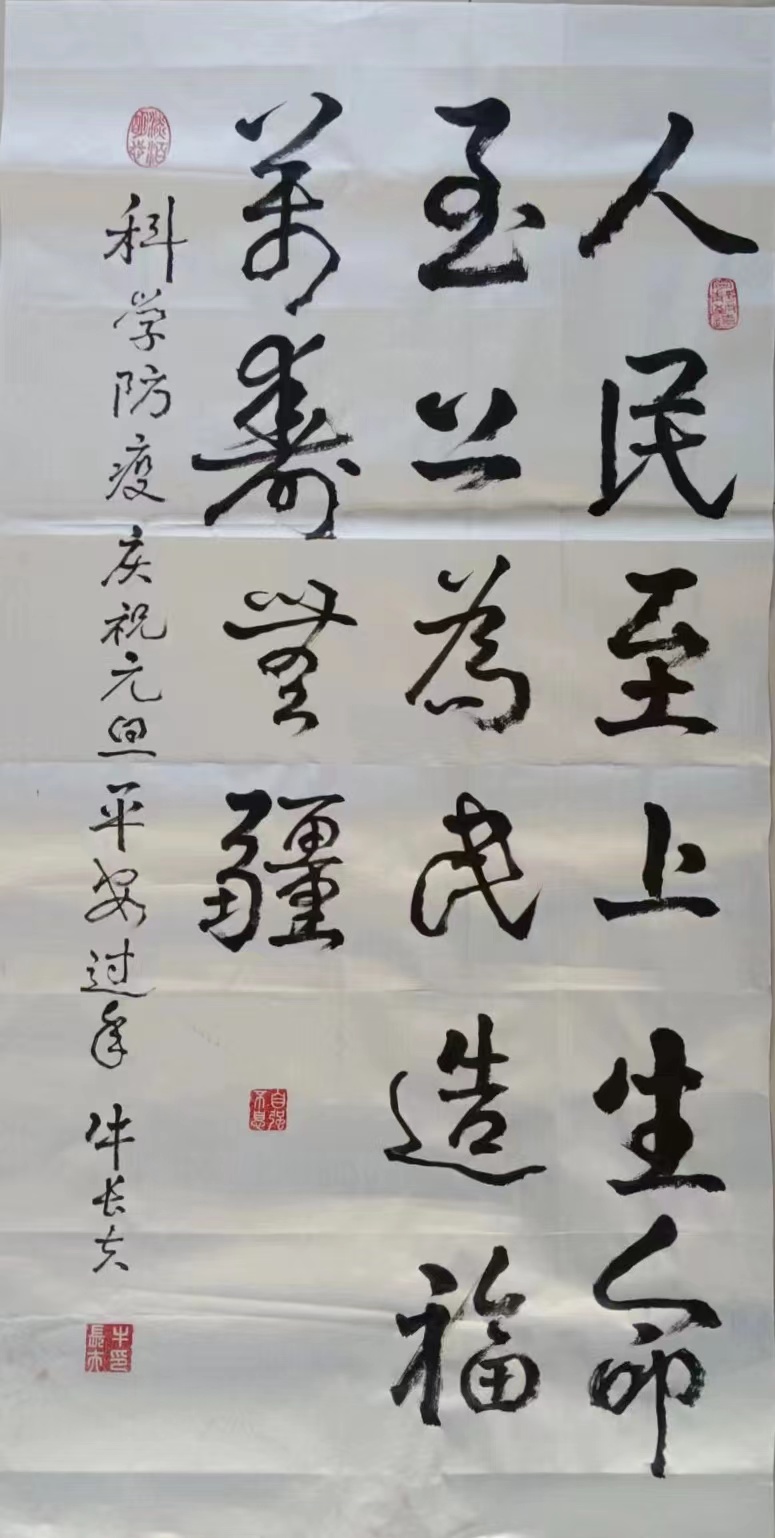 人民至上生命
至公為民造福
萬壽無疆
科学防疫庆祝元旦平安过年 牛长夫
自强不息